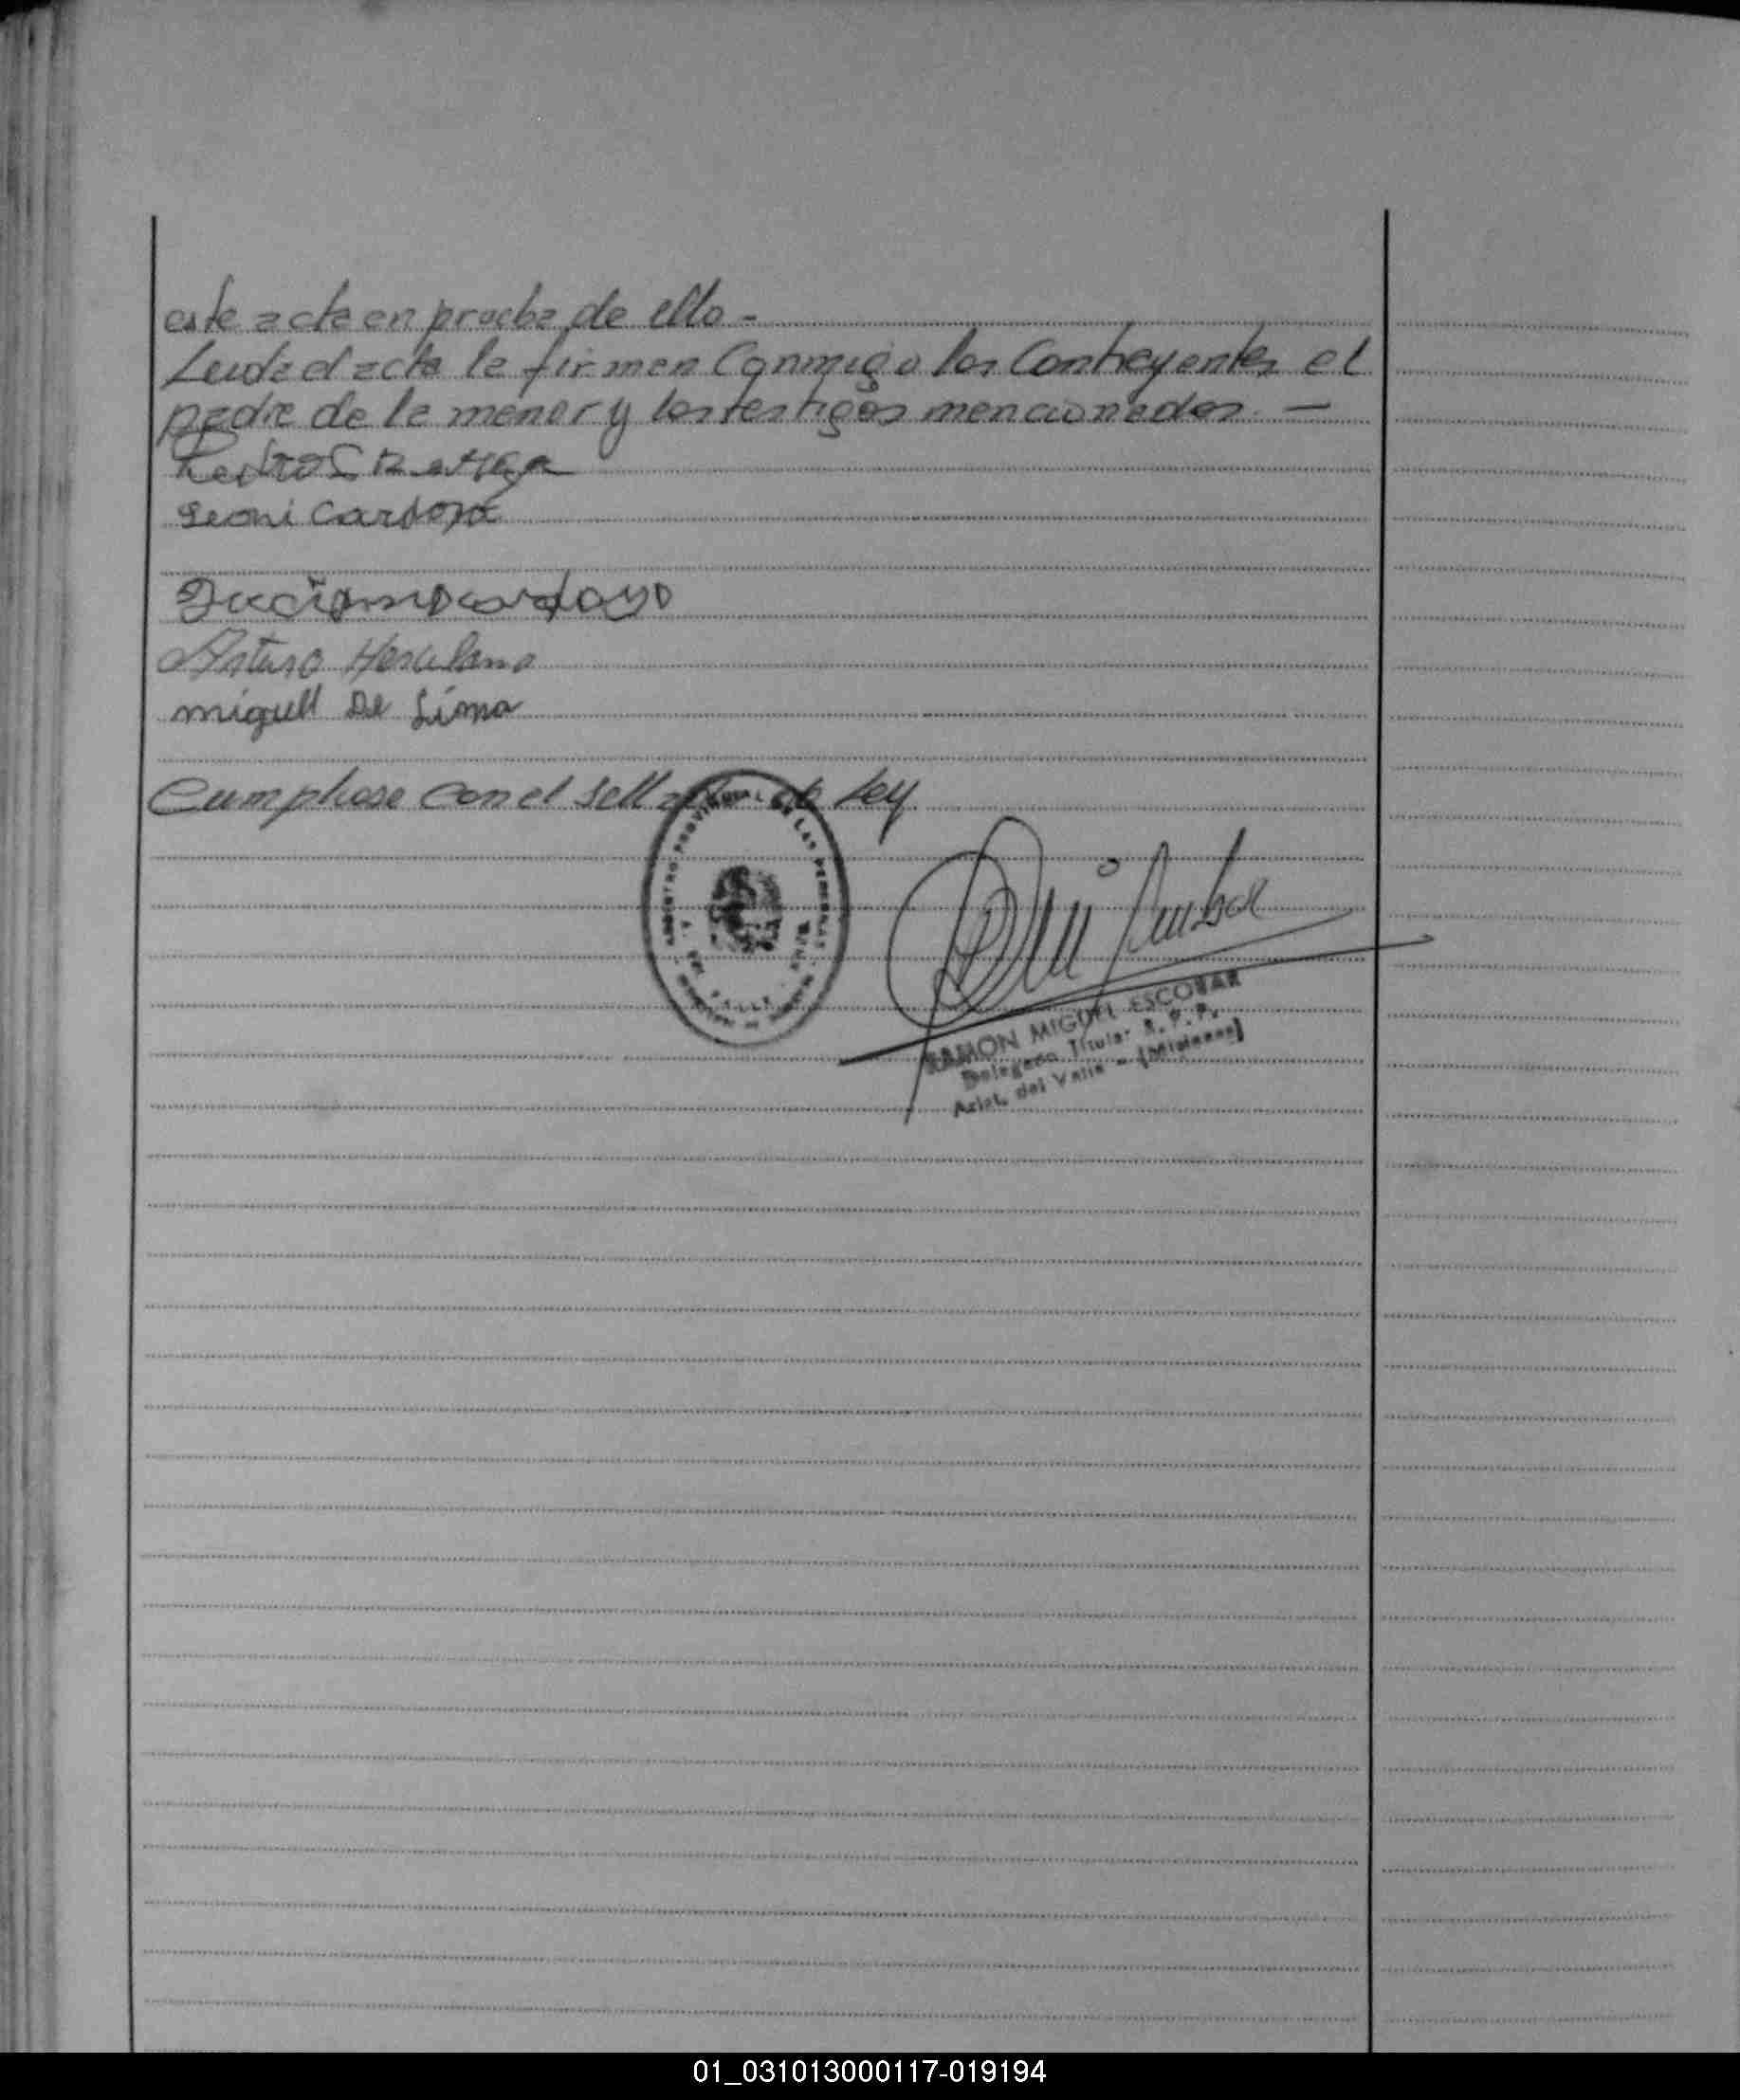 este acta en prueba de ello -
Leida el acta la firman Conmigo los Contrayentes el
padre de la menor y los testigos mencionados. —
Leoni Cardozo
Arturo Herculano
miguel De Lima
Cumplióse con el sellado de Ley
REGISTRO PROVINCIAL DE LAS PERSONAS
RAMON MIGUEL ESCOBAR
Delegado Titular R. P. P.
Arist. del Valle - (Misiones)
01_031013000117-019194